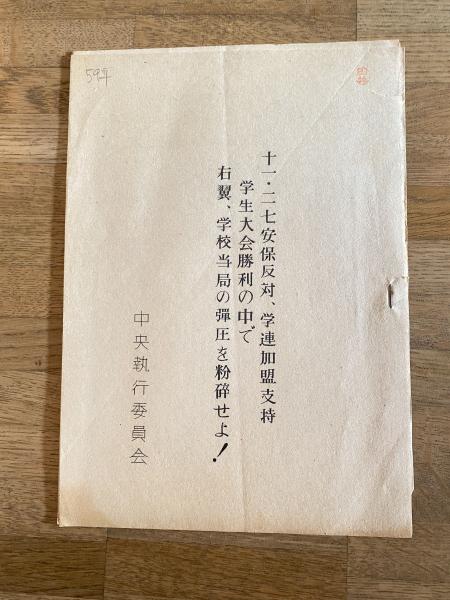 59年
十一・二七安保反対、学連加盟支持
学生大会勝利の中で
右翼、学校当局の彈圧を粉碎せよ！
中央執行委員会